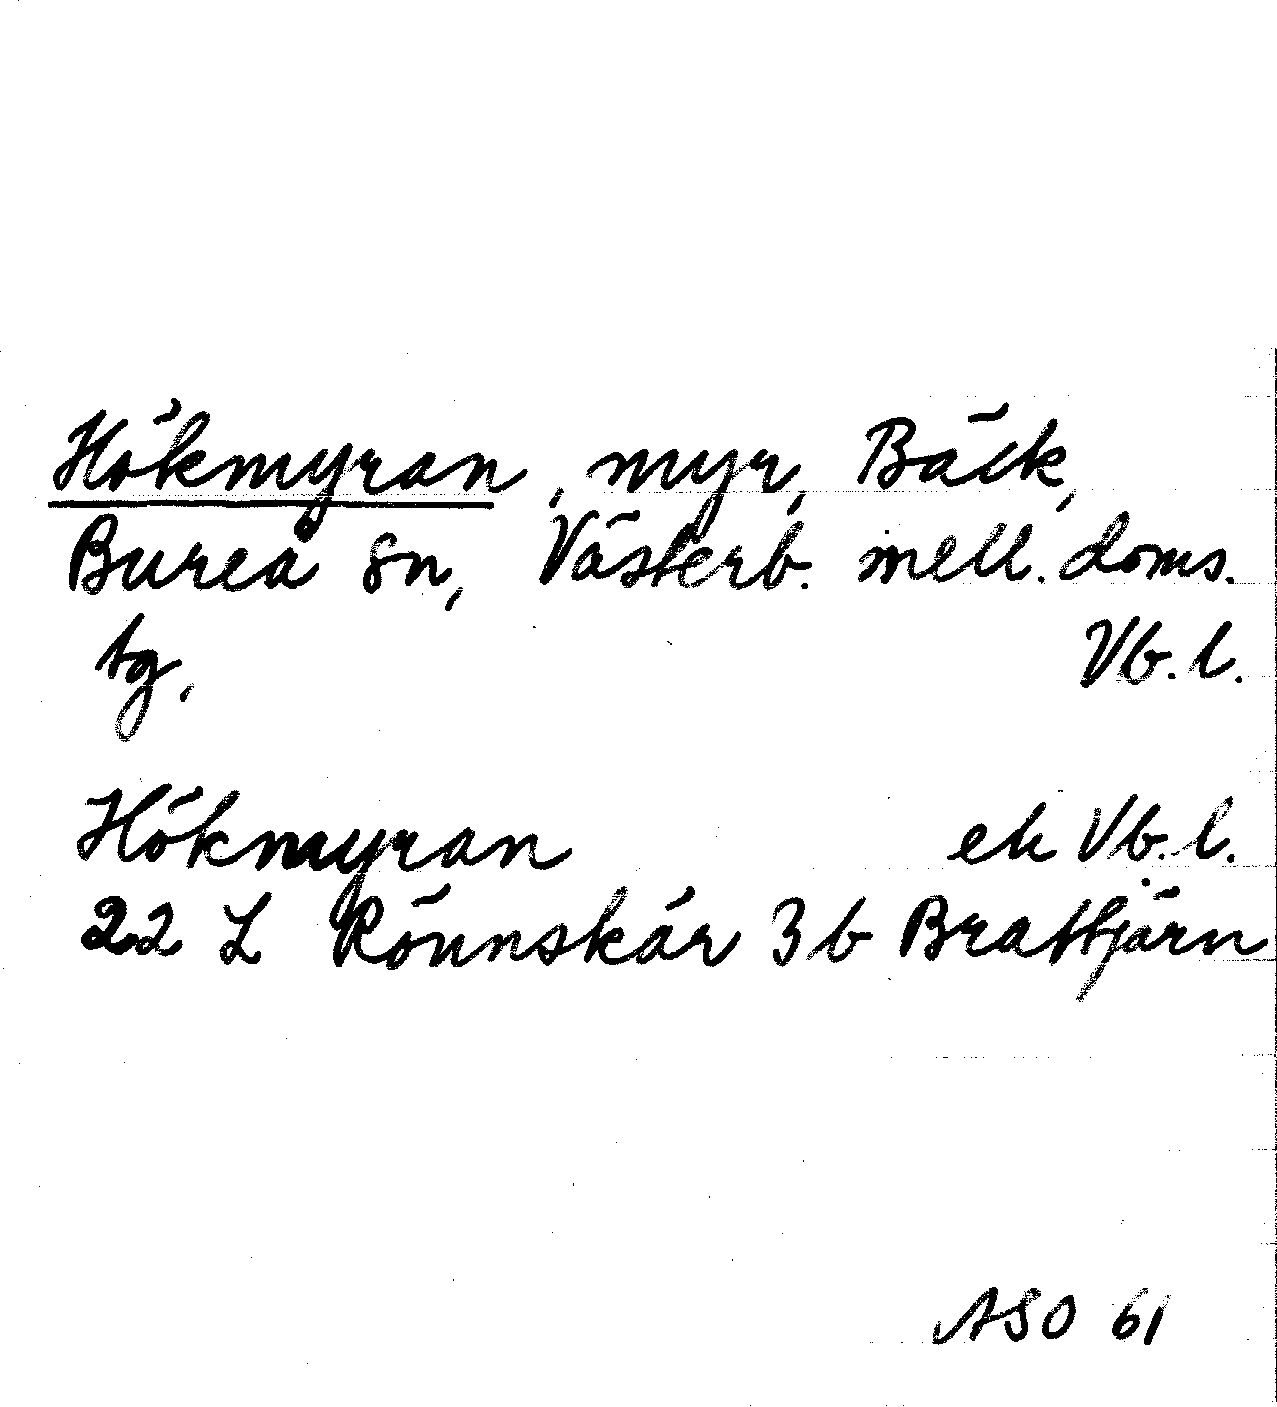 Hökmyran, myr, Bäck,
Bureå sn, Västerb. mell. doms.
tg, Vb. l.
Hökmyran ek Vb. l.
22 L Rönnskär 3 b Brattjärn
ASO 61